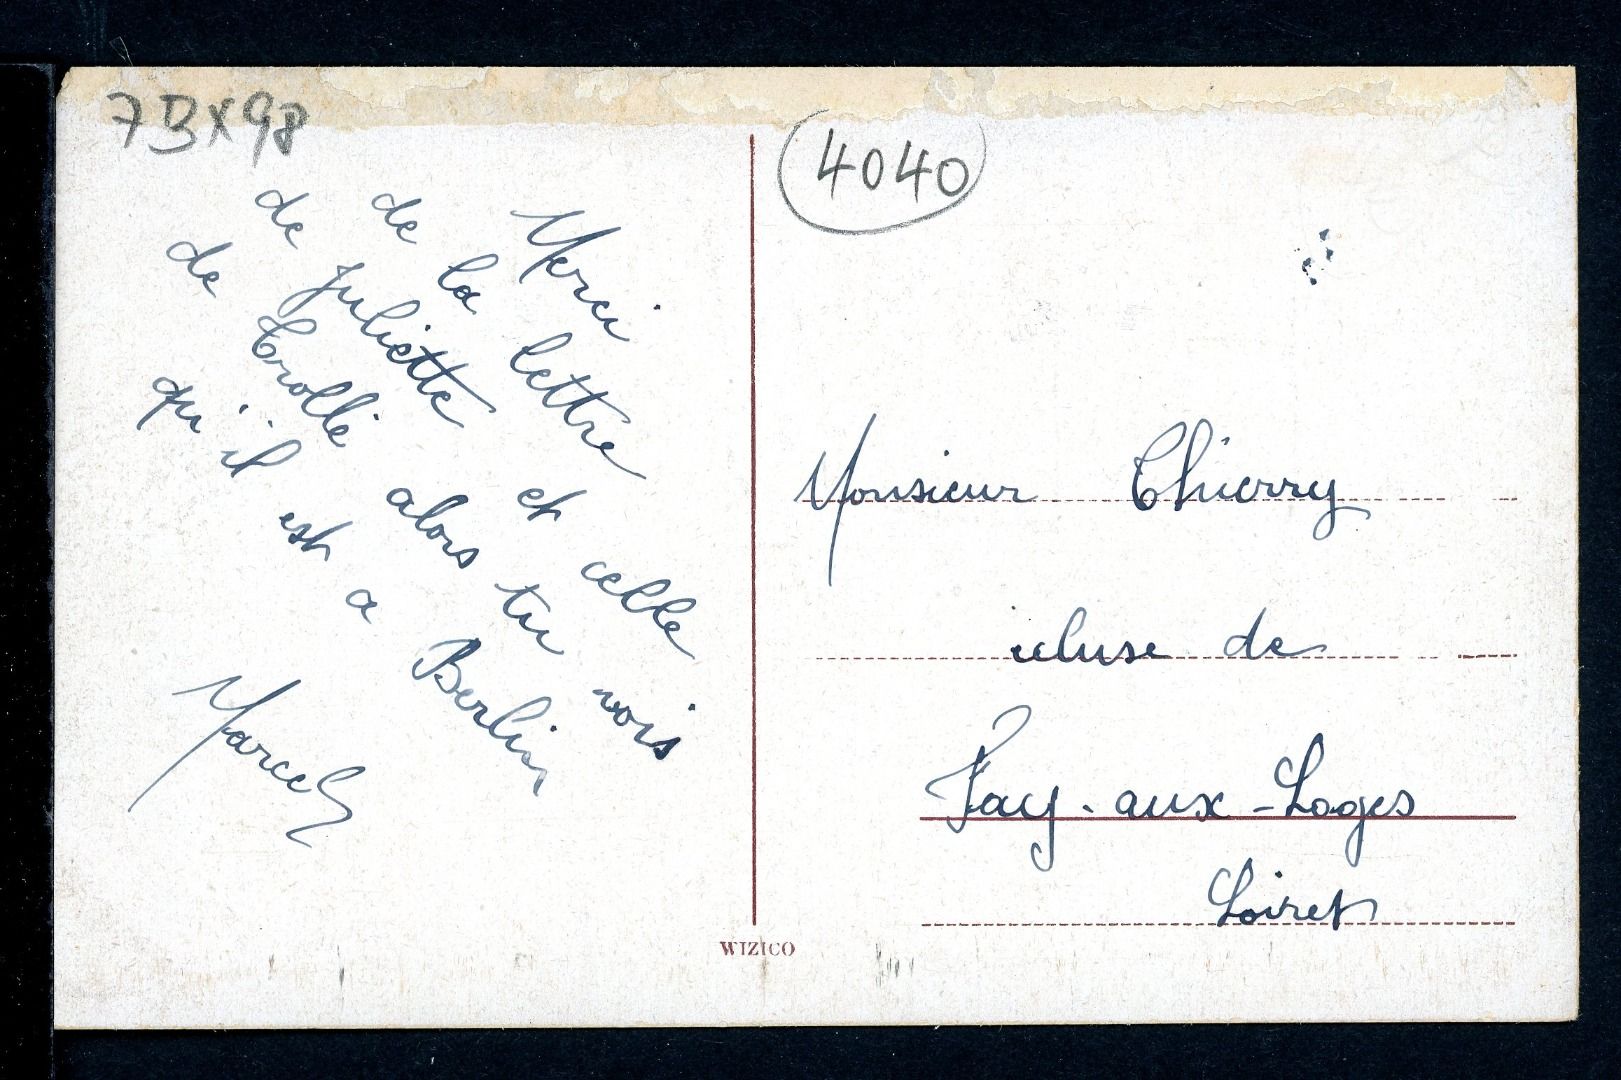 7BX98
Merci
de la lettre
de Juliette et celle
de Trollé alors tu vois
qu'il est a Berlin
Marcel
4040
Monsieur Thierry
écluse de
Fay-aux-Loges
Loiret
WIZICO